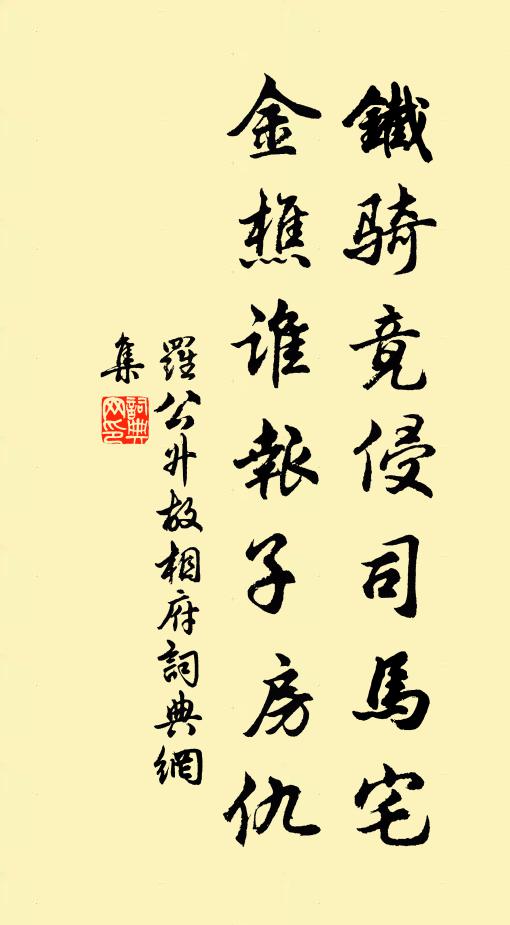 鐵骑竟侵司馬宅
金樵谁報子房仇
羅公升故相府詞典網
集
詞典網印